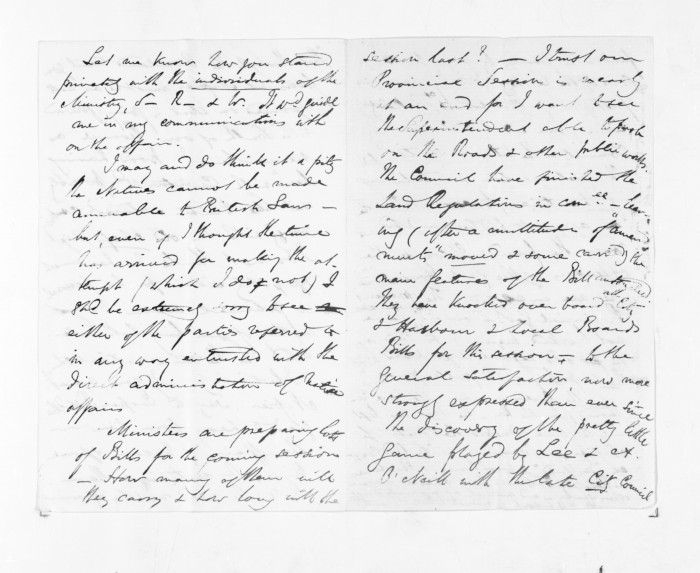 Let me know how you stand
privately with the individuals of the
Ministry, S- R- & W. It wd guide
me in my communications with
on the affair.
I may and do think it a pity
the Natives cannot be made
amenable to British Laws —
but, even if I thought the time
has arrived for making the at-
tempt (which I do not) I
shd be extremely sorry to see
either of the parties referred to
in any way entrusted with the
direct administration of Native
affairs
Ministers are preparing lots
of Bills for the coming session
— How many of them will
they carry & how long will the
session last? — I trust our
Provincial Session is nearly
at an end for I want to see
the Superintendent able to push
on the Roads & other public works.
The Council have finished the
Land Regulations in comee — leav-
ing (after a multitude of "amend-
ments" moved & some carried) the
main features of the Bill
They have knocked over board City
& Harbour & Local Boards
Bills for this session — to the
general satisfaction, now more
strongly expressed than ever since
the discovery of the pretty little
game played by Lee & A.
O'Neill with the late City Council